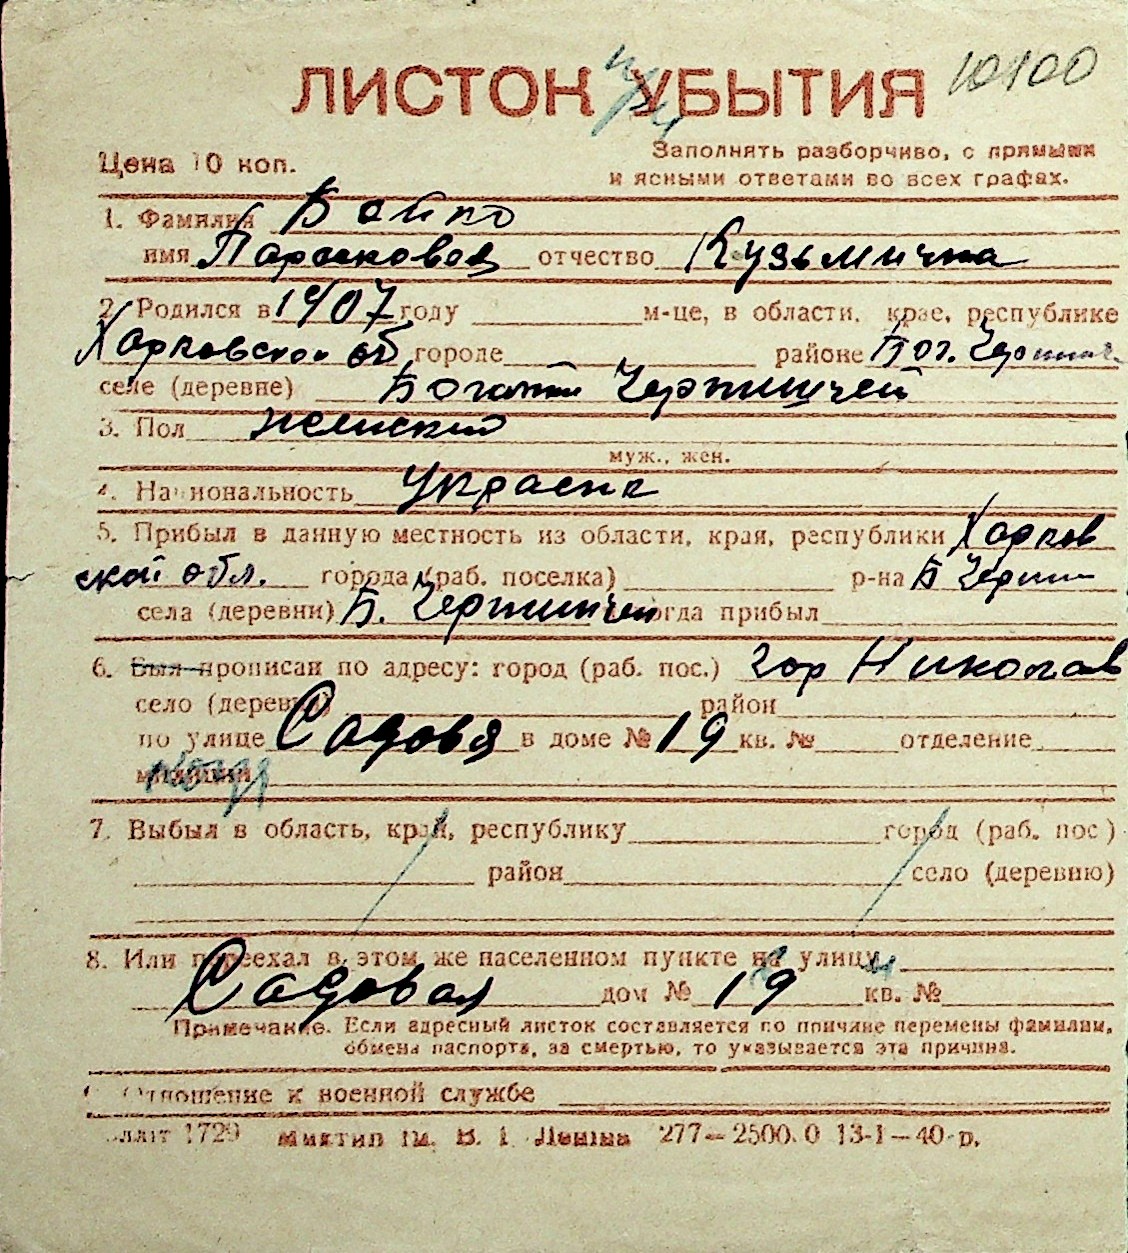 ЛИСТОК УБЫТИЯ 10100
при
Цена 10 коп.
Заполнять разборчиво, с прямыми
и ясными ответами во всех графах.
1. Фамилия Бойко
имя Парасковея отчество Кузьмична
2. Родился в 1907 году м-це, в области, крае, республике
Харковской об городе районе Бог.
селе (деревне)
3. Пол женский
муж., жен.
4. Национальность Украенка
5. Прибыл в данную местность из области, края, республики Харков
ской обл. города (раб. поселка) р-на Б
села (деревни) Б. и когда прибыл
6. Был прописан по адресу: город (раб. пос.) гор Николаев
село (деревня) район
по улице Садовя в доме № 19 кв. № отделение
милиции
7. Выбыл в область, край, республику город (раб. пос.)
район село (деревню)
8. Или переехал в этом же населенном пункте на улицу
Садовая дом № 19 кв. №
Примечание. Если адресный листок составляется по причине перемены фамилии,
обмена паспорта, за смертью, то указывается эта причина.
Отношение к военной службе
1729 Миктип ім. В. І. Леніна 277—2500.0 13-І—40 р.